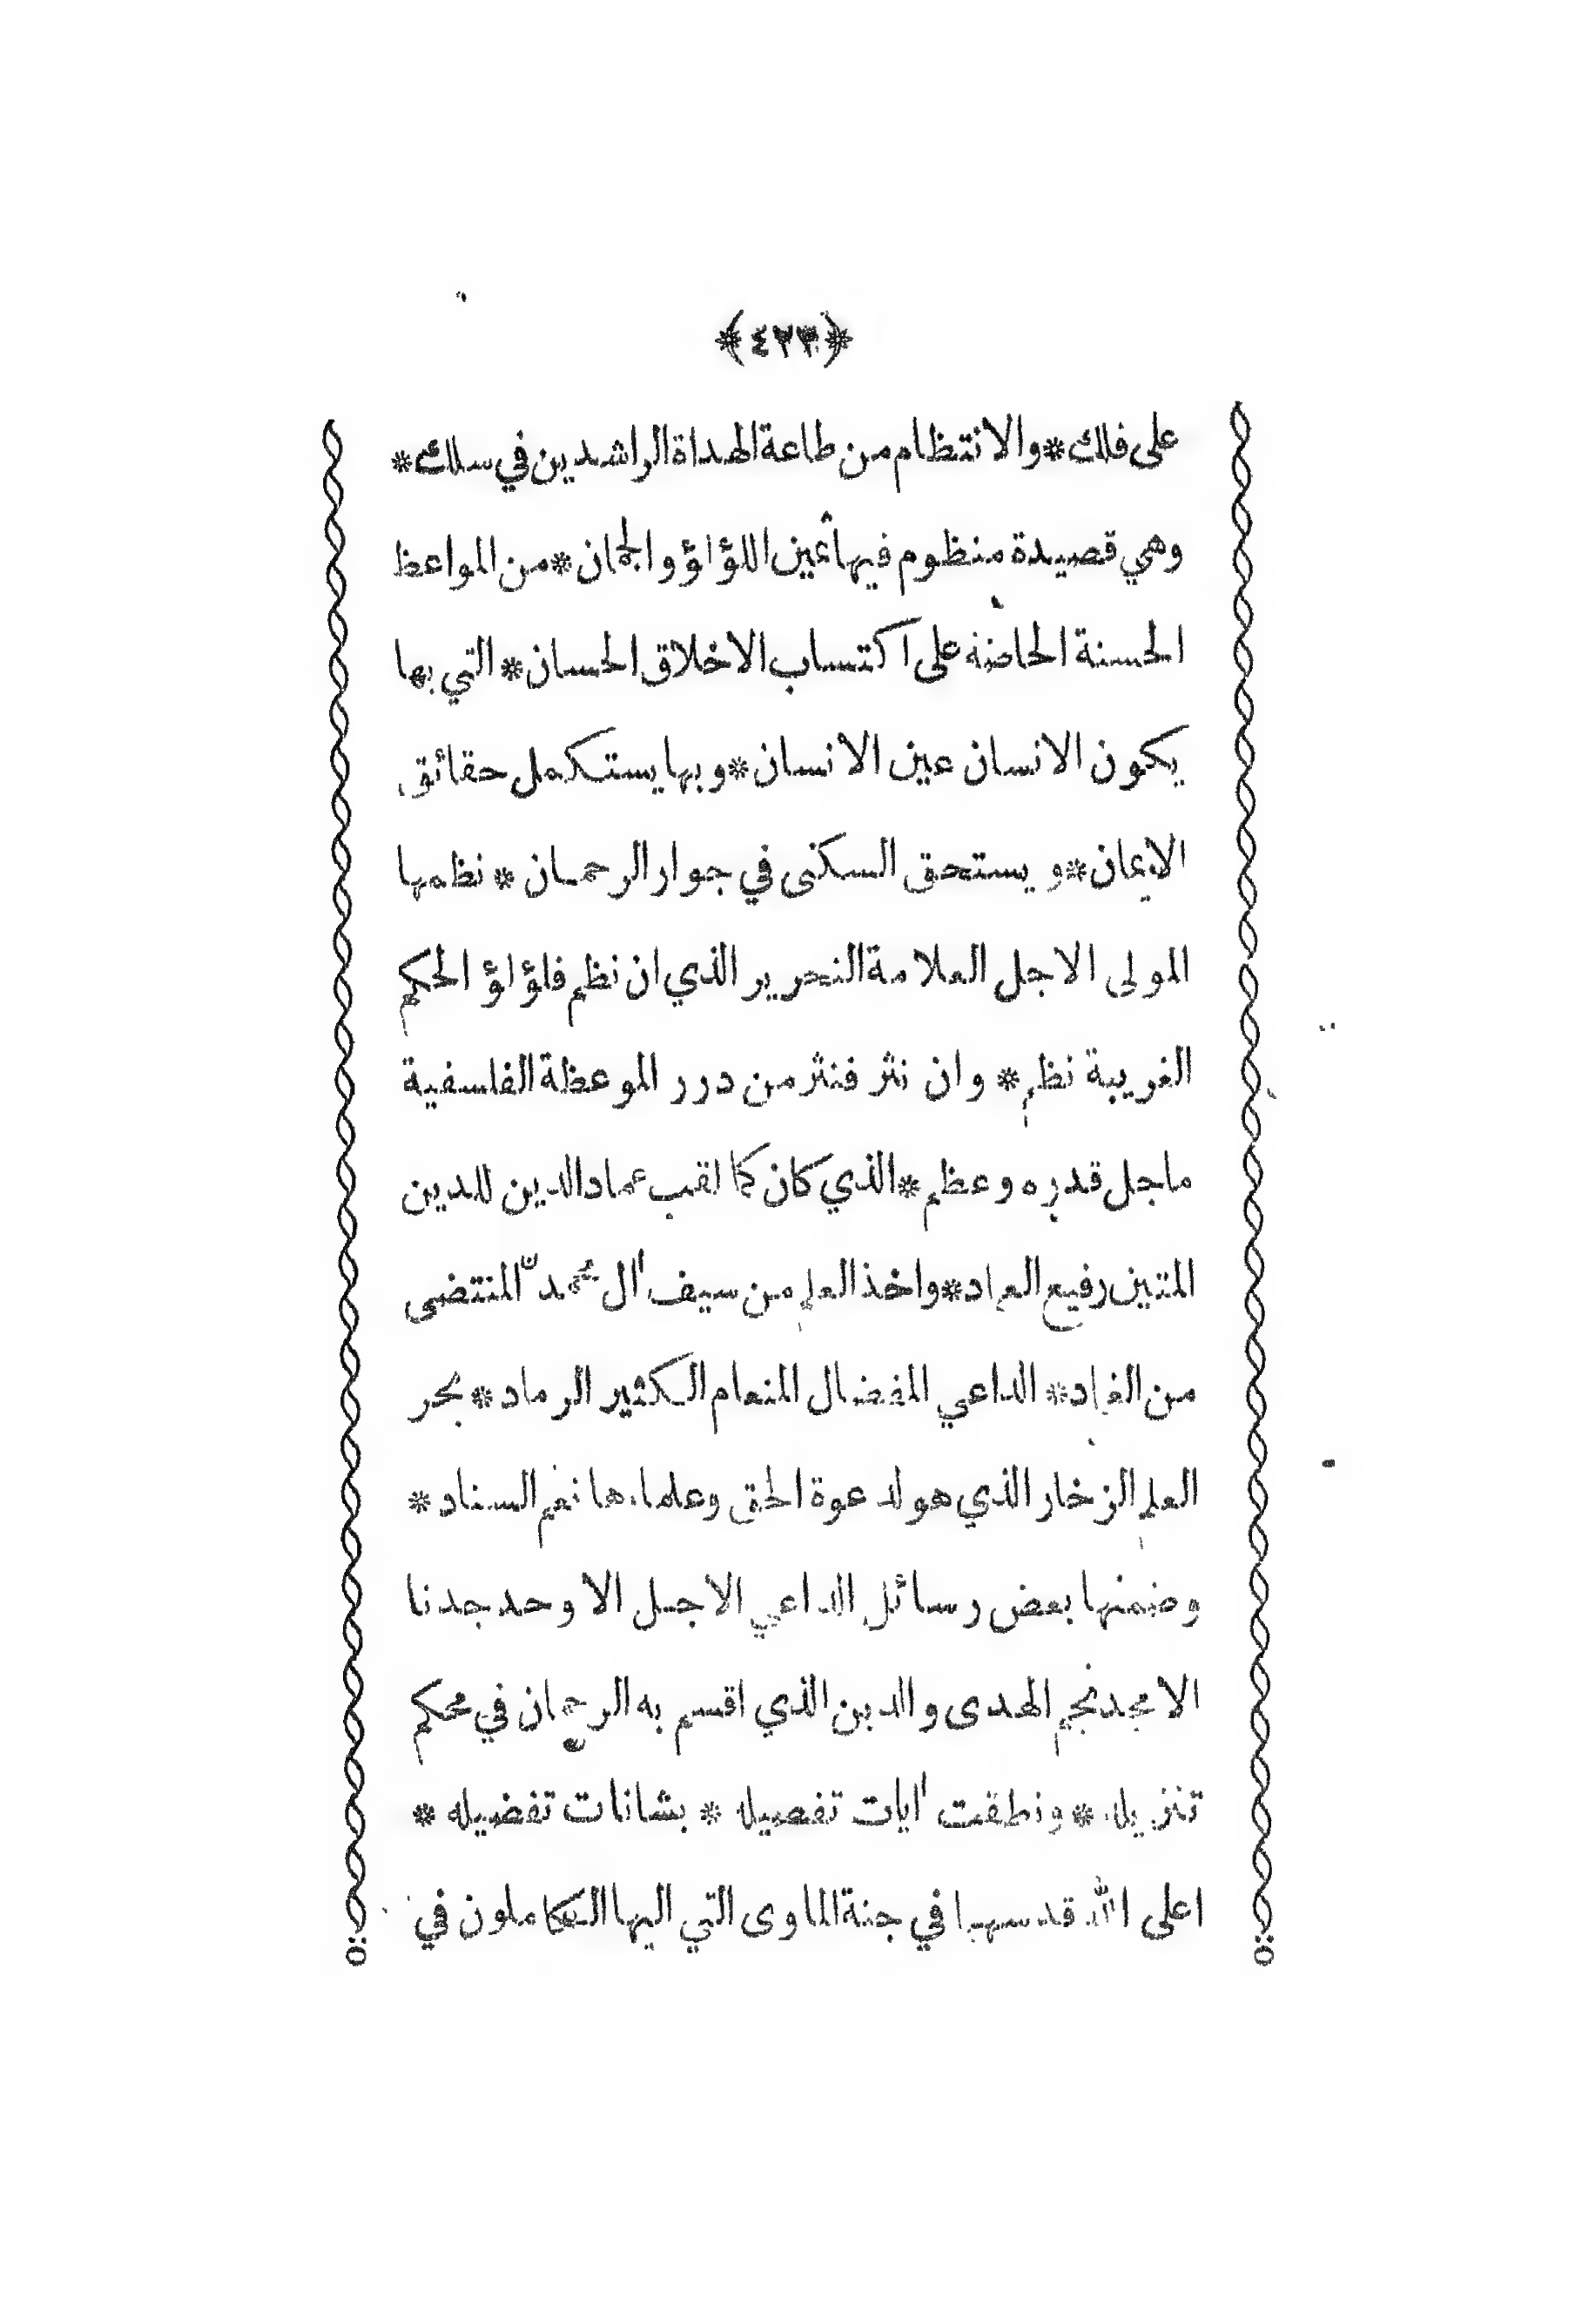 ﴿٤٢٣﴾
على فلك * والانتظام من طاعة الهداة الراشدين في سلك *
وهي قصيدة منظوم فيها ثمين اللؤلؤ والجمان * من المواعظ
الحسنة الحاضة على اكتساب الاخلاق الحسان * التي بها
يكون الانسان عين الانسان * وبها يستكمل حقائق
الايمان * و يستحق السكنى في جوار الرحمان * نظمها
المولى الاجل العلامة النحرير الذي ان نظم فلؤلؤ الحكم
الغريبة نظم * وان نثر فنثر من درر الموعظة الفلسفية
ما جل قدره وعظم * الذي كان كما لقب عماد الدين للدين
المتين رفيع العماد * واخذ العلم من سيف اٰل محمد ن المنتضى
من الغماد * الداعي المفضال المنعام الكثير الرماد * بحر
العلم الزخار الذي هو لدعوة الحق وعلماءها نعم السناد *
وضمنها بعض رسائل الداعي الاجل الاوحد جدنا
الامجد نجم الهدى والدين الذي اقسم به الرحمان في محكم
تنزيله * ونطقت اٰيات تفصيله * بشانات تفضيله *
اعلى الله قدسهما في جنة الماوى التي اليها الكاملون في